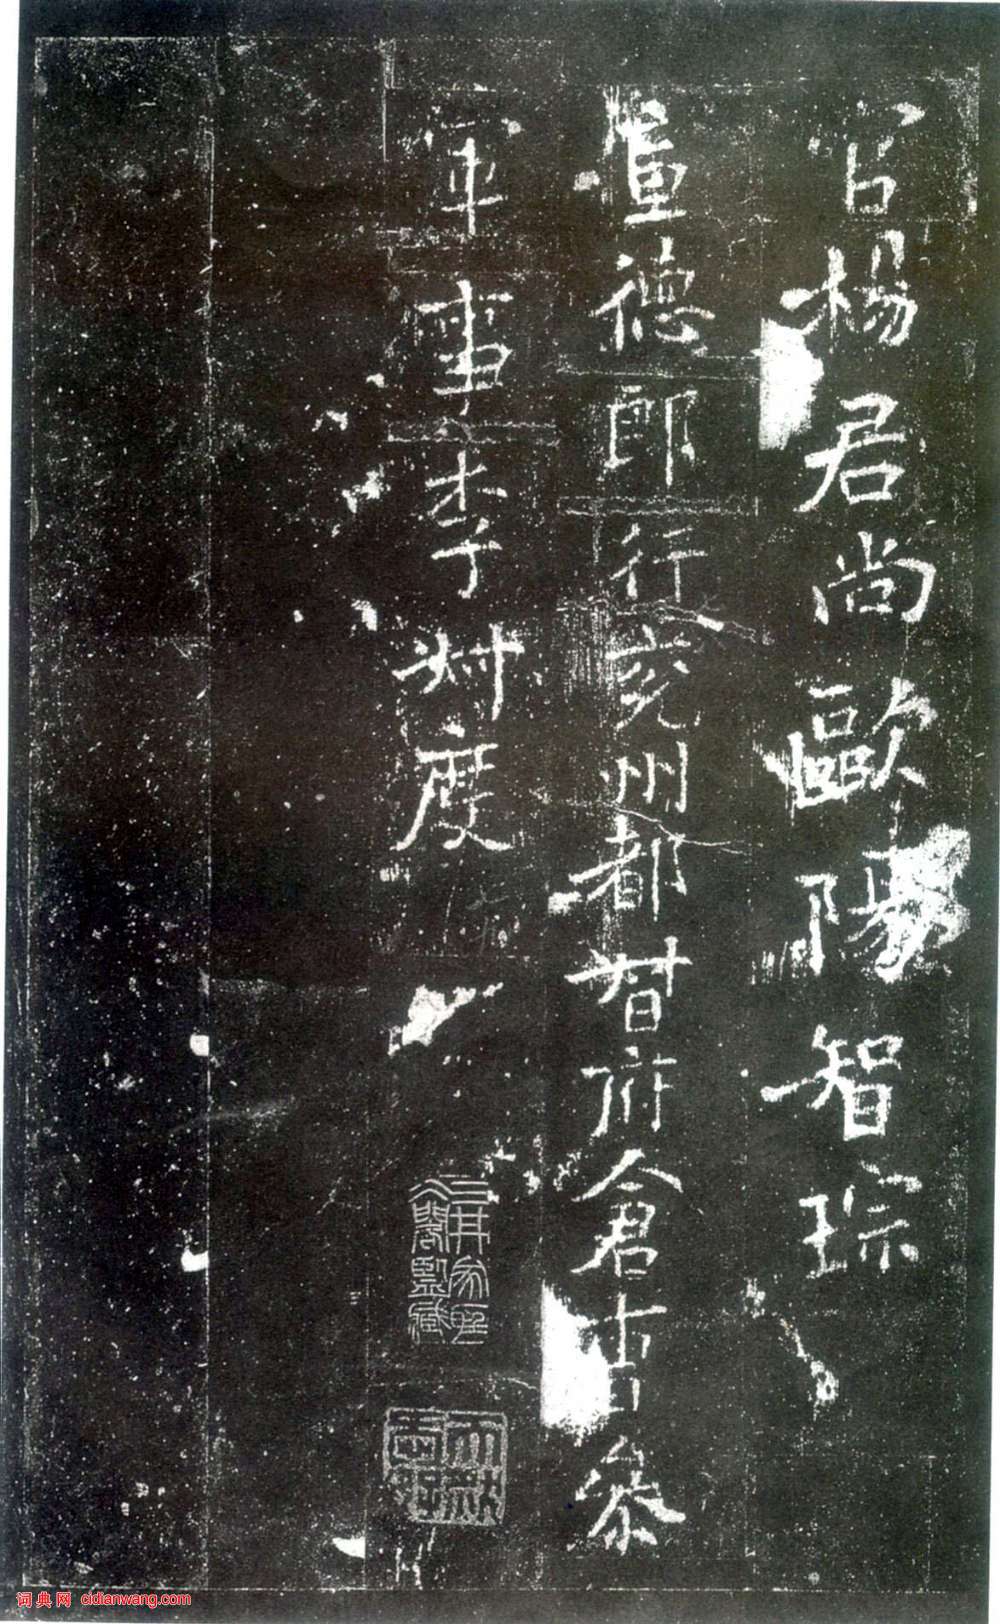 官楊君尚歐陽智琮
宣德郎行兖州都督府倉曹參
軍事李 度
词典网 cidianwang.com